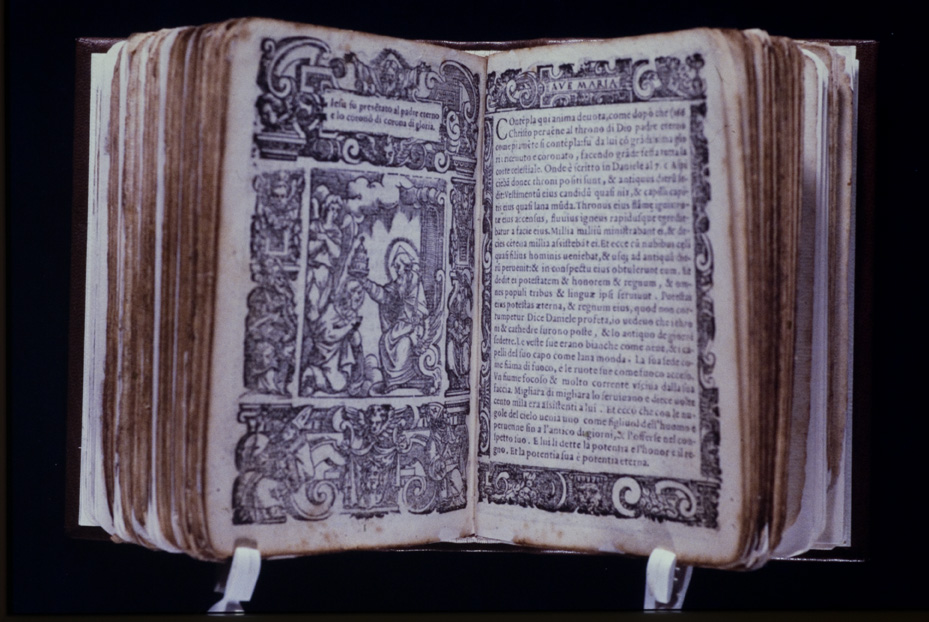 Iesu fu presẽtato al padre eterno
e lo coronò di corona di gloria.
AVE MARIA
COntẽpla qui anima deuota, come dopò che
Christo peruẽne al throno di Deo padre eterno
come piamẽte si contẽpla: fu da lui cõ grãdissima
riceuuto e coronato, facendo grãde festa tutta la
corte celestiale. Onde è scritto in Daniele al 7. c.
donec throni positi sunt, & antiquus
Vestimentũ eius candidũ quasi nix, & capilli capi
tis eius quasi lana mũda. Thronus eius
eius accensus, fluuius igneus rapidusque egredie
batur a facie eius. Millia milliũ ministrabant ei, & de
cies cẽtena millia assistebãt ei. Et ecce cũ nubibus celi
quasi filius hominis ueniebat, & usq; ad antiquũ die
rũ peruenit: & in conspectu eius obtulerunt eum. Et
dedit ei potestatem & honorem & regnum, & om
nes populi tribus & linguæ ipsi seruiunt. Potestas
eius potestas æterna, & regnum eius, quod non cor
rumpetur. Dice Daniele profeta, io uedeuo che i thro
ni & cathedre furono poste, & lo antiquo de giorni
sedette. Le veste sue erano bianche come neue, & i ca
pelli del suo capo come lana monda. La sua sede co
me fiama di fuoco, e le ruote sue come fuoco acceso.
Vn fiume focoso & molto corrente vsciua dalla sua
faccia. Migliara di migliara lo seruiuano e diece uolte
cento mila era assistenti a lui. Et ecco che con le nu
gole del cielo ueniua uno come figliuol dell'huomo e
peruenne fin a l'antico da giorni, & l'offerse nel con
spetto suo. E lui li dette la potentia e l'honor e il re
gno. Et la potentia sua è potentia eterna.